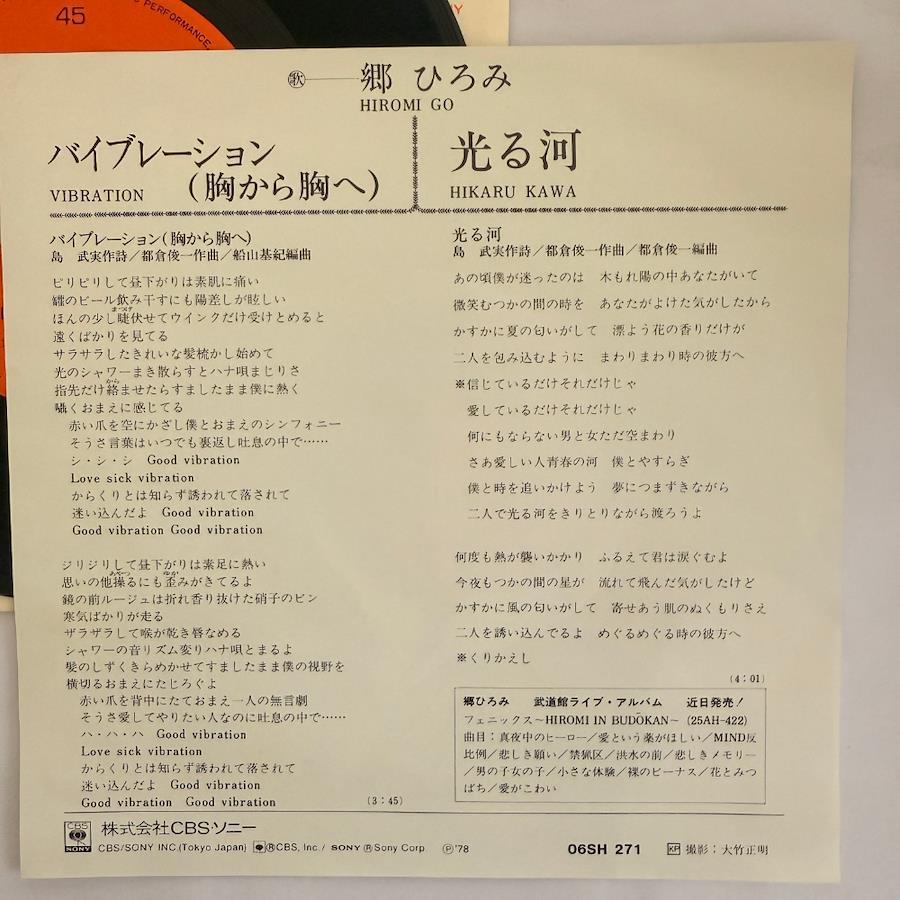 45
PERFORMANCE,
NY
歌 郷 ひろみ
HIROMI GO
バイブレーション
(胸から胸へ)
VIBRATION
光る河
HIKARU KAWA
バイブレーション(胸から胸へ)
島 武実作詩/都倉俊一作曲/船山基紀編曲
ピリピリして昼下がりは素肌に痛い
罐のビール飲み干すにも陽差しが眩しい
ほんの少し睫伏せてウインクだけ受けとめると
まつげ
遠くばかりを見てる
サラサラしたきれいな髪梳かし始めて
光のシャワーまき散らすとハナ唄まじりさ
指先だけ絡ませたらすましたまま僕に熱く
から
囁くおまえに感じてる
赤い爪を空にかざし僕とおまえのシンフォニー
そうさ言葉はいつでも裏返し吐息の中で……
シ・シ・シ Good vibration
Love sick vibration
からくりとは知らず誘われて落されて
迷い込んだよ Good vibration
Good vibration Good vibration
ジリジリして昼下がりは素足に熱い
思いの他操るにも歪みがきてるよ
あやつ ゆが
鏡の前ルージュは折れ香り抜けた硝子のビン
寒気ばかりが走る
ザラザラして喉が乾き唇なめる
シャワーの音リズム変りハナ唄とまるよ
髪のしずくきらめかせてすましたまま僕の視野を
横切るおまえにたじろぐよ
赤い爪を背中にたておまえ一人の無言劇
そうさ愛してやりたい人なのに吐息の中で……
ハ・ハ・ハ Good vibration
Love sick vibration
からくりとは知らず誘われて落されて
迷い込んだよ Good vibration
Good vibration Good vibration
(3:45)
光る河
島 武実作詩/都倉俊一作曲/都倉俊一編曲
あの頃僕が迷ったのは 木もれ陽の中あなたがいて
微笑むつかの間の時を あなたがよけた気がしたから
かすかに夏の匂いがして 漂よう花の香りだけが
二人を包み込むように まわりまわり時の彼方へ
※信じているだけそれだけじゃ
愛しているだけそれだけじゃ
何にもならない男と女ただ空まわり
さあ愛しい人青春の河 僕とやすらぎ
僕と時を追いかけよう 夢につまずきながら
二人で光る河をきりとりながら渡ろうよ
何度も熱が襲いかかり ふるえて君は涙ぐむよ
今夜もつかの間の星が 流れて飛んだ気がしたけど
かすかに風の匂いがして 寄せあう肌のぬくもりさえ
二人を誘い込んでるよ めぐるめぐる時の彼方へ
※くりかえし
(4:01)
郷ひろみ 武道館ライブ・アルバム 近日発売!
フェニックス〜HIROMI IN BUDŌKAN〜(25AH-422)
曲目:真夜中のヒーロー/愛という薬がほしい/MIND反
比例/悲しき願い/禁猟区/洪水の前/悲しきメモリー
/男の子女の子/小さな体験/裸のビーナス/花とみつ
ばち/愛がこわい
CBS SONY 株式会社CBS・ソニー
CBS/SONY INC.(Tokyo Japan) ®CBS, Inc./ SONY ®Sony Corp. ℗'78 06SH 271 KP 撮影:大竹正明